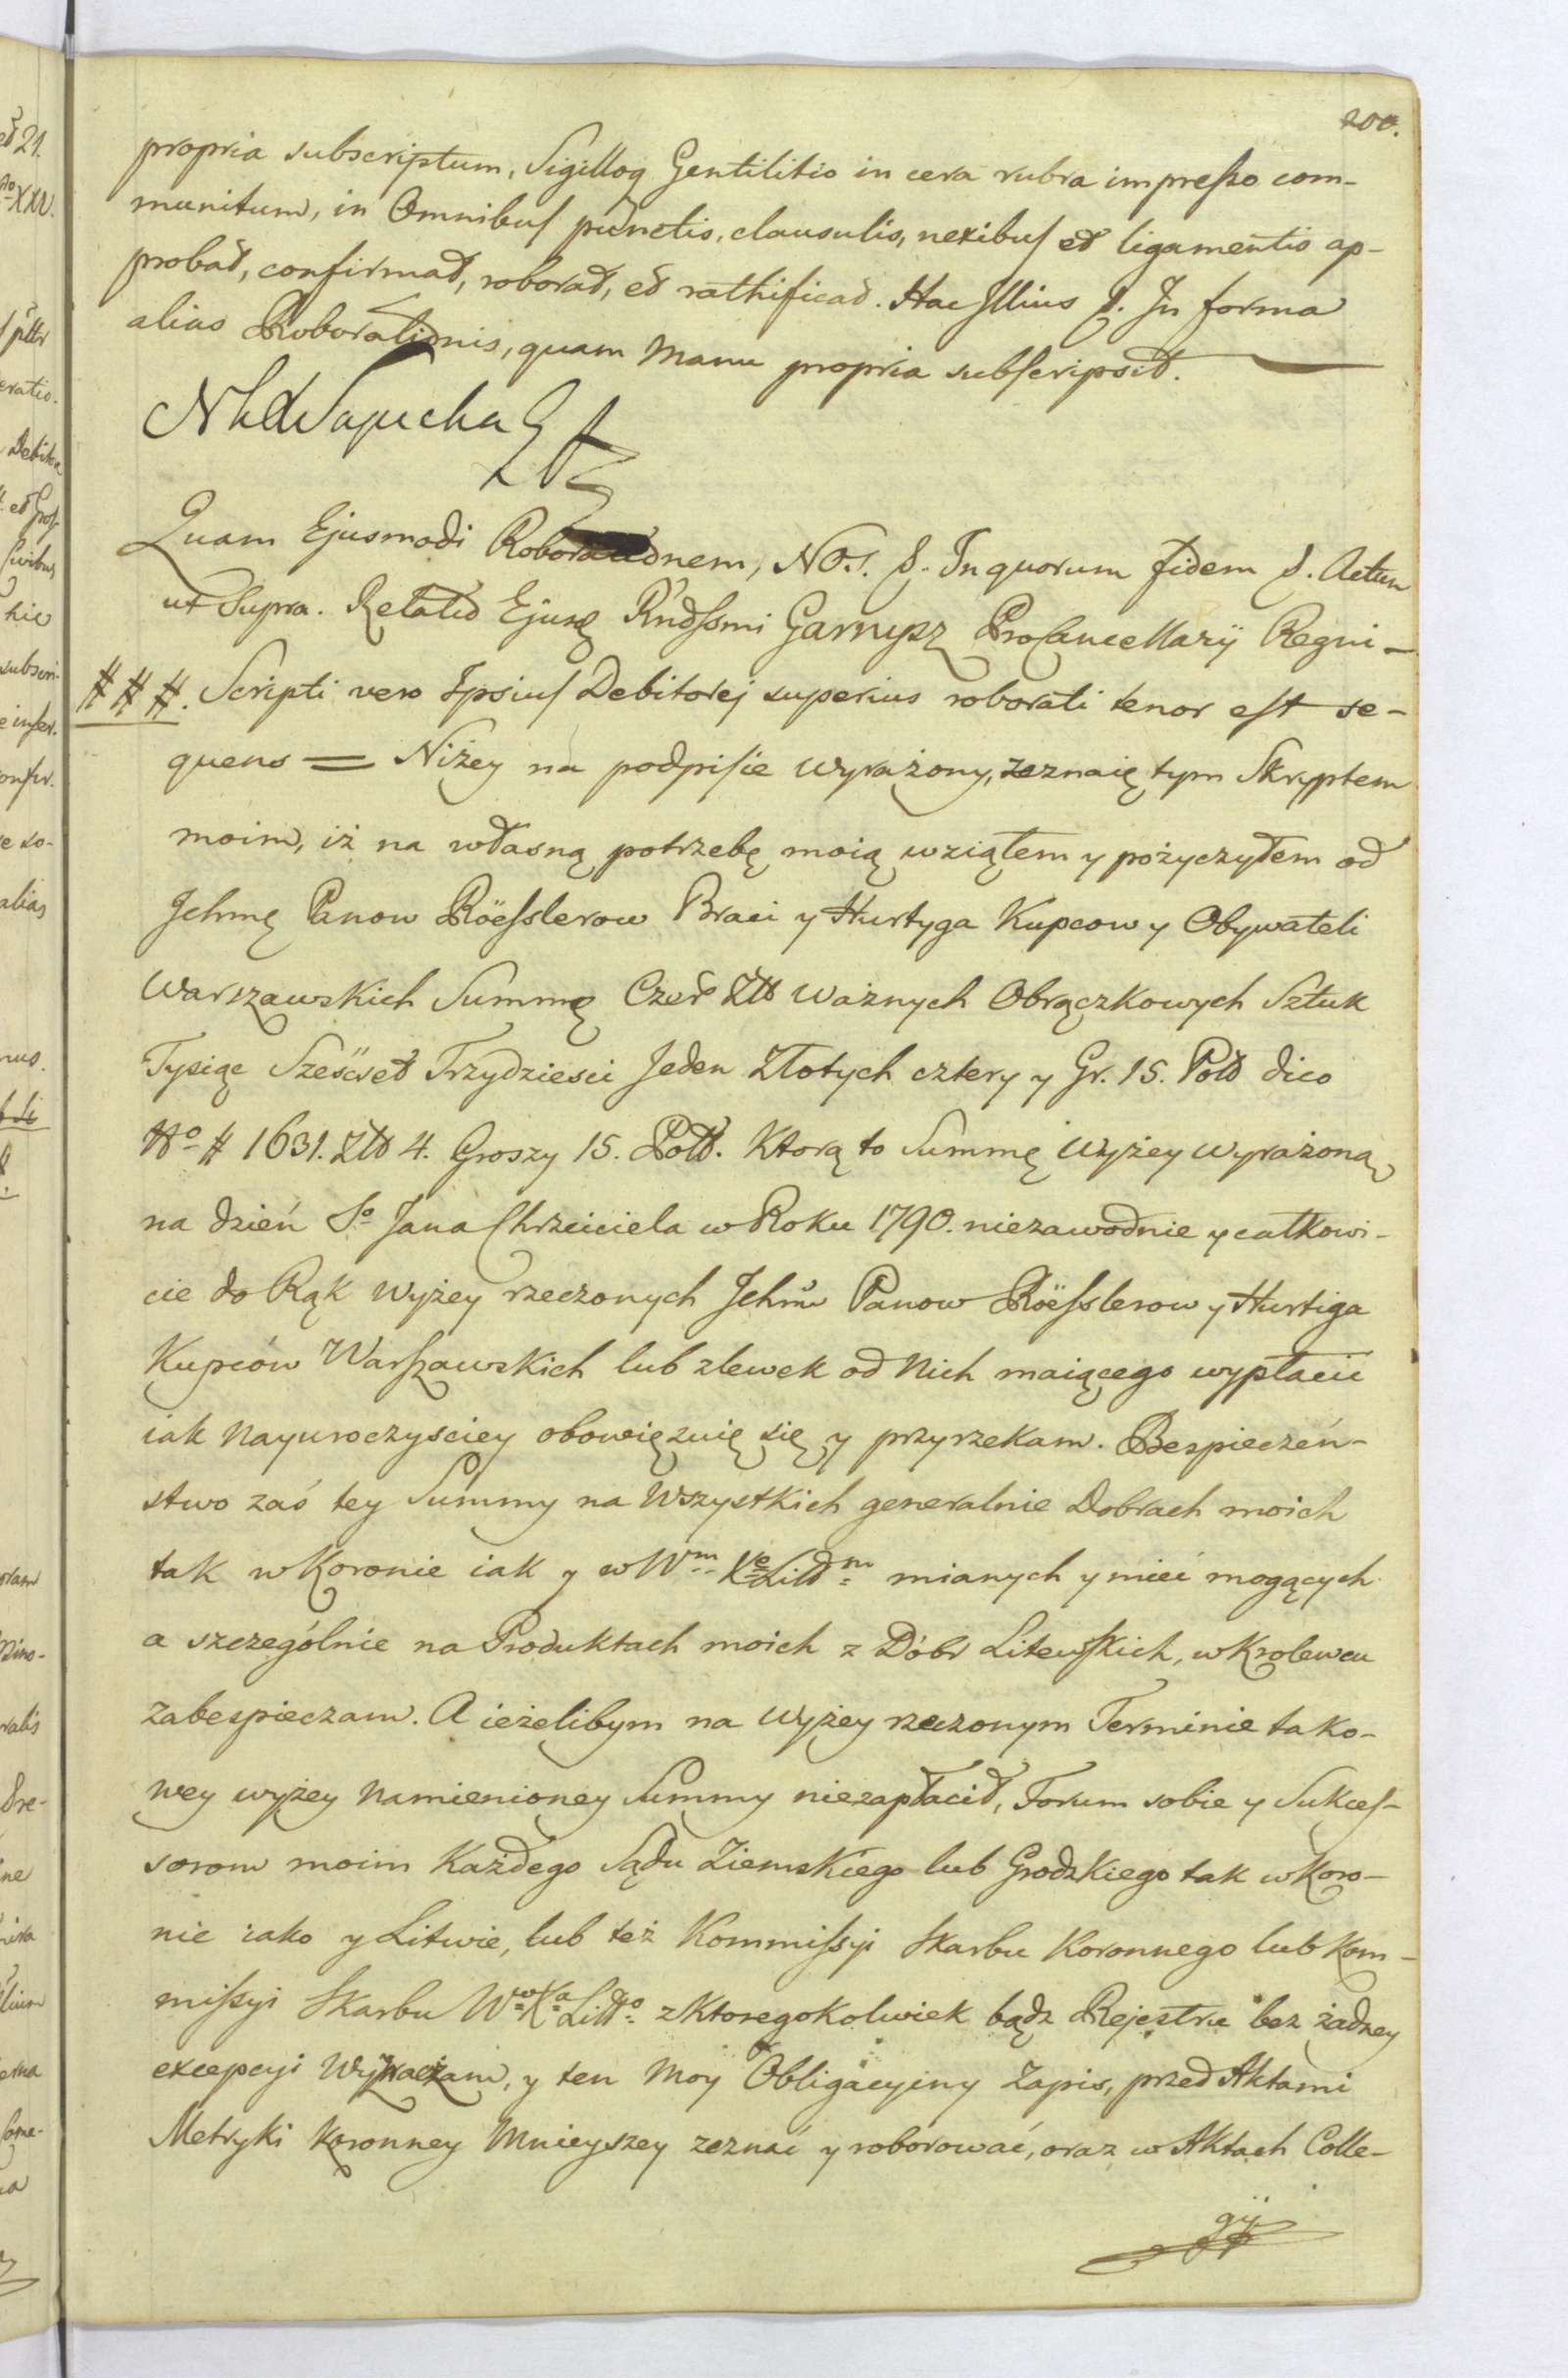 200.
propria subscriptum, Sigilloq Gentilitio in cera rubra impreſso com-
munitum, in Omnibuſ punctis, clausulis, nexibuſ et ligamentis ap-
probat, confirmat, roborat, et rathificat. Hac Illius &. In forma
alias Roborationis, quam Manu propria subſcripsit.
Quam Ejusmodi Roboraõnem, NOS. &. In quorum fidem &. Actum
ut Supra. Relatio Ejusq Rndſsmi Garnysz ProCancellarÿ Regni
###. Scripti vero Ipsiuſ Debitorej superius roborati tenor eſt se-
quens = Niżey na podpiſie wyrażony, zeznaię tym Skryptem
moim, iż na własną potrzebę moią wziąłem y pożyczyłem od
Jchmę Panow Röeſslerow Braci y Hurtyga Kupcow y Obywateli
Warszawskich Summę Czer Złł ważnych Obrączkowych Sztuk
Tysiąc Sześćset Trzydziesci Jeden Złotych cztery y Gr. 15. Poł dico
No # 1631. Złł 4. Groszy 15. Poll. Ktorą to Summę Wyżey wyrażoną
na dzień So Jana Chrzciciela w Roku 1790. niezawodnie y całkowi-
cie do Rąk Wyżey rzeczonych Jchm Panow Röeſslerow y Hurtiga
Kupców Warſzawskich lub zlewek od Nich maiącego wypłacić
iak Nayuroczysciey obowięzuię się y przyrzekam. Bespieczeń-
stwo zaś tey Summy na Wszystkich generalnie Dobrach moich
tak w Koronie iak y w Wm Xe Litt m mianych y mieć mogących
a szczególnie na Produktach moich z Dóbr Litewſkich, w Krolewcu
zabespieczam. A ieżelibym na Wyżey rzeczonym Terminie tako-
wey wyżey Namienioney Summy niezapłacił, Forum sobie y Sukceſ-
sorom moim Każdego Sądu Ziemskiego lub Grodzkiego tak w Koro-
nie iako y Litwie, lub też Kommiſsyi Skarbu Koronnego lub Kom-
miſsyi Skarbu Wo Xa Litto z Ktoregokolwiek bądz Rejestru bez żadney
excepcyi Wyznaczam, y ten Moy Obligacyiny Zapis, przed Aktami
Metryki Koronney Mnieyszey zeznać y roborować, oraz w Aktach Colle-
gÿ